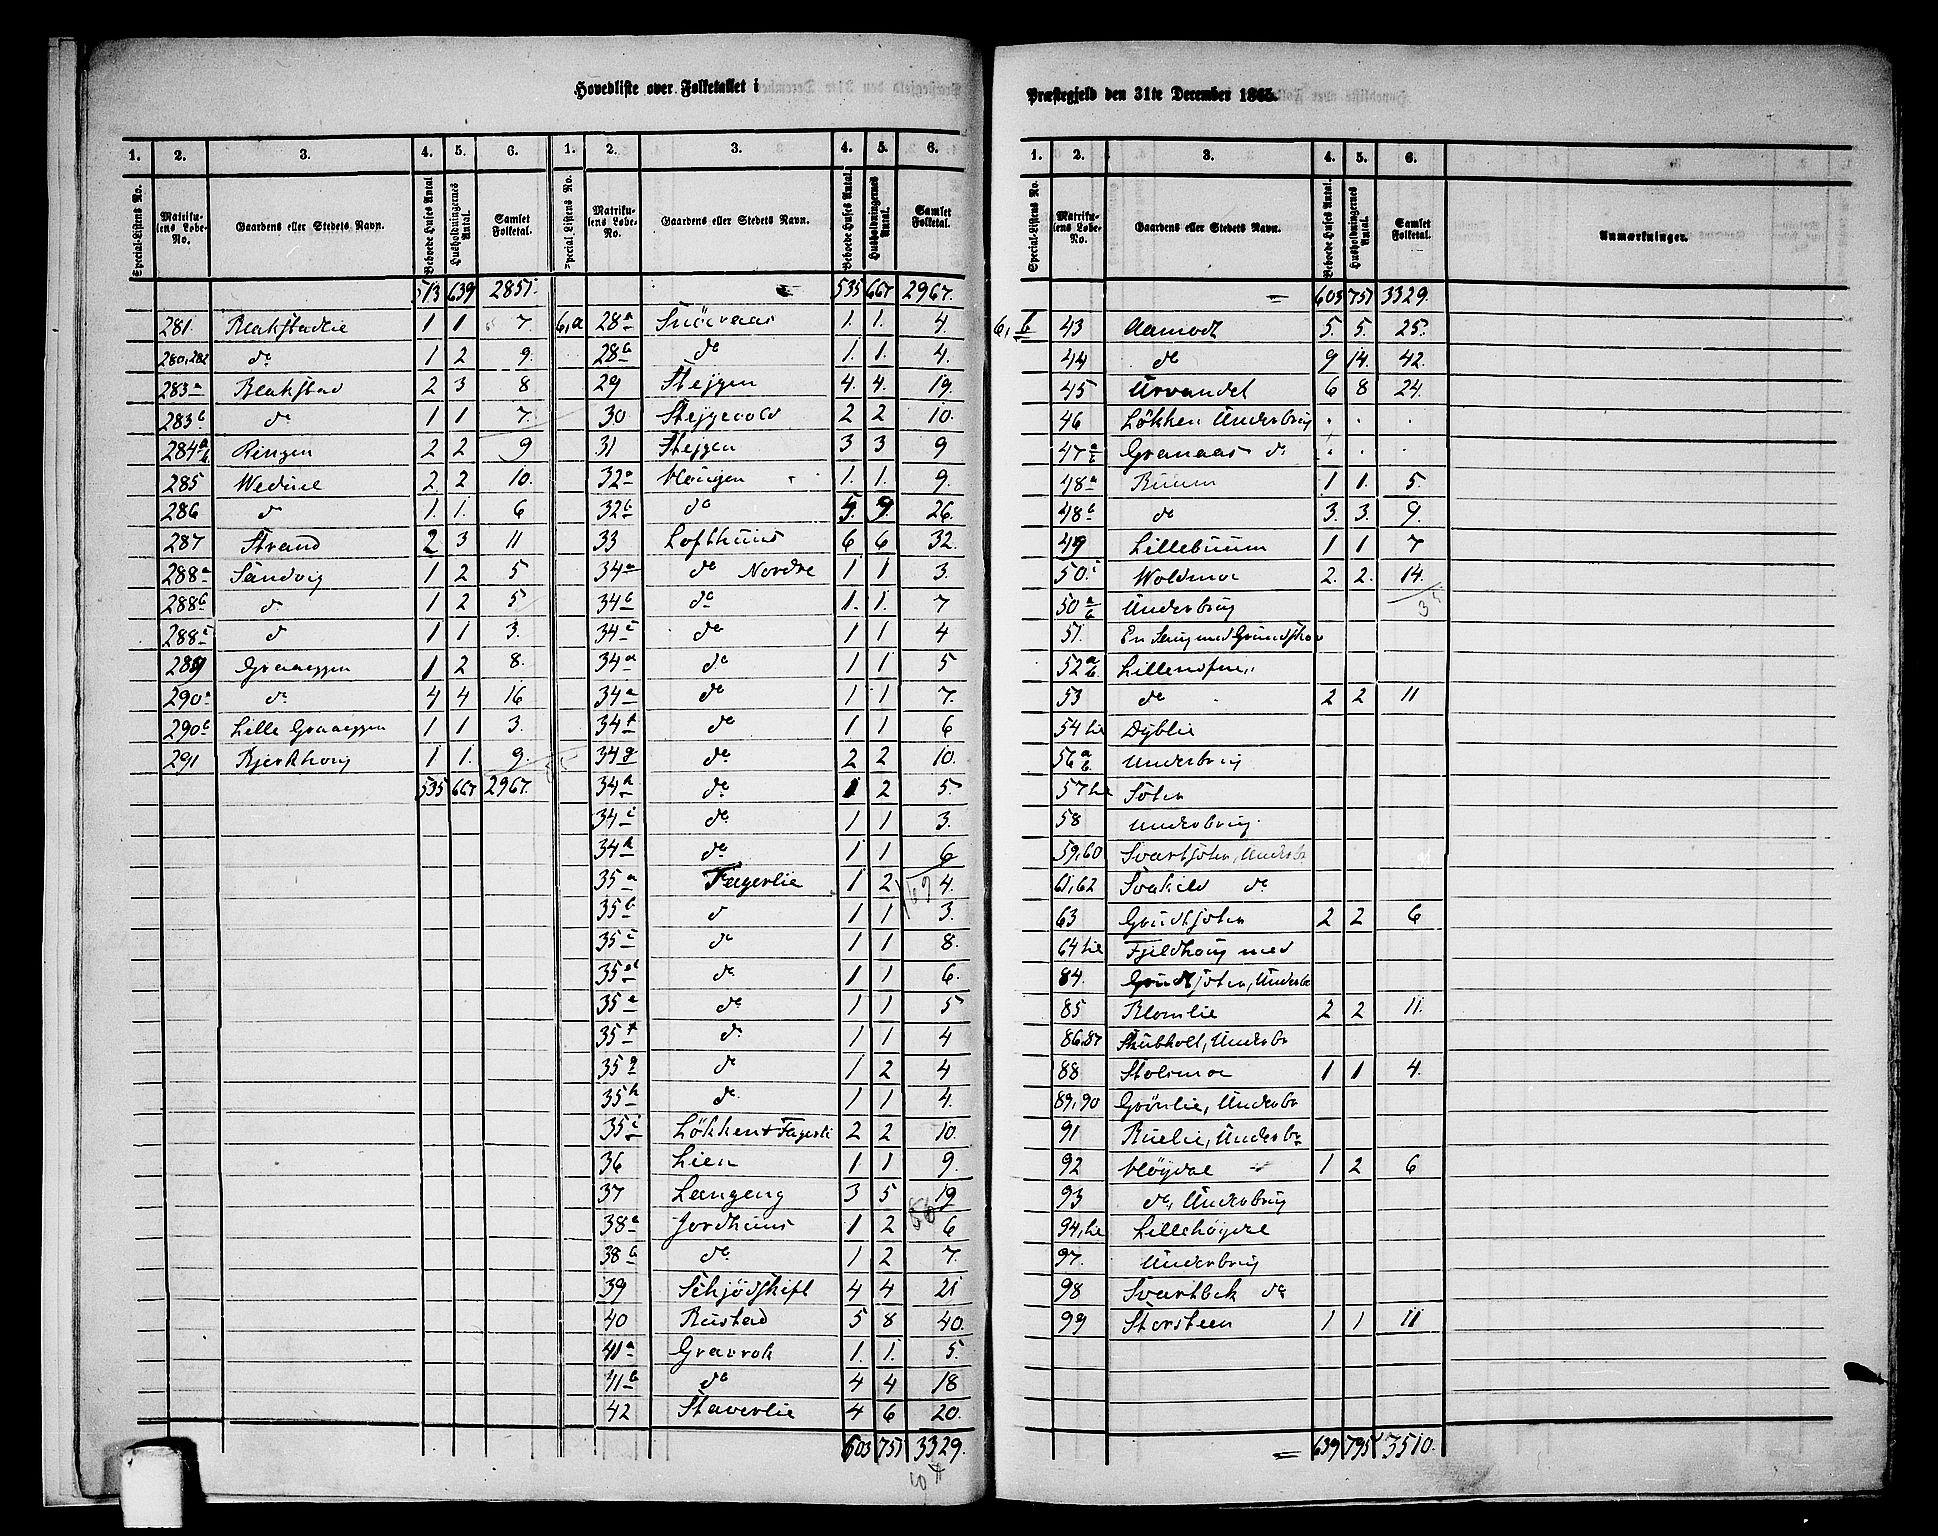 Hovedliste over Folketallet i
1. 2. 3. 4. 5. 6. 1. 2. 3. 4. 5. 6.
Special-Listens No. Matrikulens Løbe-No. Gaardens eller Stedets Navn. Beboede Huses Antal Husholdningernes Antal. Samlet Folketal. Special Listens No. Matrikulens Løbe-No. Gaardens eller Stedets Navn. Beboede Huses Antal. Husholdningernes Antal. Samlet Folketal.
513 639 2851.
281. Blakstadlie 1 1 7.
280,282 do 1 2 9.
283a Blakstad 2 3 8
283b do 1 1 7.
284a b Ringen 2 2 9
285 2 2 10.
286 do 1. 1. 6
287 Strand 2 3 11
288a Sandvig 1 2 5
288b do 1 2 5
288c do 1 1 3.
289 Graaeggen 1 2 8.
290a do 4 4 16
290b Lille Graaeggen 1 1 3.
291 Bjerkhoug 1 1. 9.
535 667 2967.
535 667 2967.
6,a 28a 1. 1. 4.
28b do 1. 1. 4.
29 Stejgen 4. 4. 19.
30 2 2 10.
31 Stejgen 3 3 9
32a Hougen 1. 1. 9.
32b do 5. 9. 26.
33 Lofthuus 6 6 32.
34a do Nordre 1 1 3.
34b do 1. 1. 7
34c do 1 1 4
34d do 1 1 5
34e do 1 1 7.
34f do 1 1 6
34g do 2 2 10.
34h do 1 2 5.
34i do 1 1 3.
34k do 1 1 6
35a Fagerlie 1 2 4.
35b do 1 1 3.
35c do 1 1 8.
35d do 1 1 6.
35e do 1 1 5
35f do 1 1 4
35g do 1 2 4
35h do 1 1 4.
35i Løkken + Fagerli 2 2 10.
36 Lien 1 1 9.
37 Langeng 3 5 19
38a Jordhuus 1 2 6
38b do 1 2 7.
39 Schjødskift 4 4 21
40 Rustad 5 8 40.
41a Gravrok 1. 1. 5.
41b do 4 4 18
42 Staverlie 4 6 20.
603 751 3329.
Præstegjeld den 31te December 1865.
1. 2. 3. 4. 5. 6. 7.
Special-Listens No. Matrikulens Løbe-No. Gaardens eller Stedets Navn. Beboede Huses Antal. Husholdningernes Antal. Samlet Folketal. Anmærkninger.
= 603 751 3329.
6,b 43 Aamodt 5 5. 25.
44 do 9 14. 42.
45 Urvandet 6 8 24.
46 Løkken Underbrug . . .
47a b Granaas do . . .
48a Ruum 1 1. 5.
48b do 3. 3. 9.
49 Lillebuum 1 1 7
50c Woldmoe 2. 2. 14.
50a b Underbrug
51. En Seng med Grundskov
52a b
53 do 2 2 11
54 til Dyblie
56a b. Underbrug
57 til Søter
58 Underbrug.
59,60 Svartsøter, Underbr
61,62 do
63 Grudtsøter 2 2 6
64 til Fjeldhoug med
84. Grudtsøter, Underbr
85 Blomlie 2 2 11.
86,87 Stubholt, Underbr
88 Stolsmoe 1 1 4.
89,90 Grønlie, Underbr
91 Ruelie, Underbr
92 Høydal 1 2 6
93 do, Underbrug
94, til Lillehøydal
97. Underbrug
98 Svartbek do
99 Storsteen 1 1 11
= 639 795 3510.